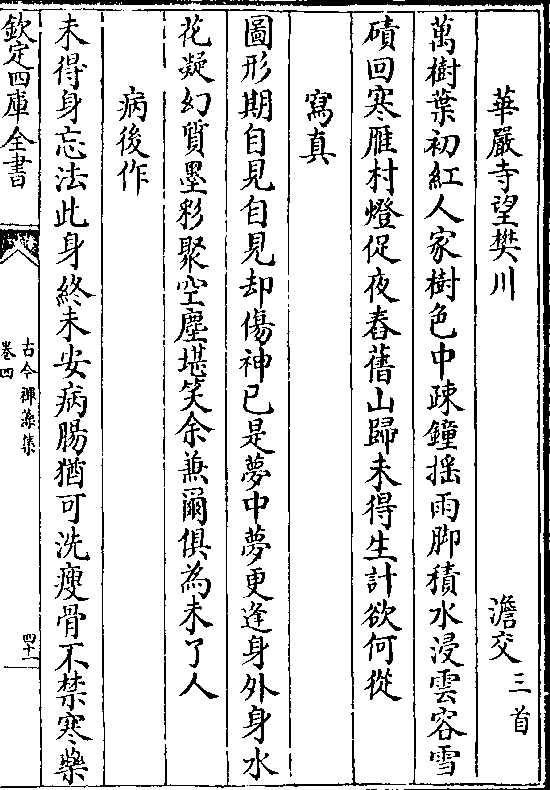 華嚴寺望樊川 澹交三首
萬樹葉初紅人家樹色中疎鐘揺雨脚積水浸雲容雪
磧回寒雁村燈促夜舂舊山歸未得生計欲何從
寫真
圖形期自見自見却傷神已是夢中夢更逢身外身水
花凝幻質墨彩聚空塵堪笑余兼爾俱為未了人
病後作
未得身忘法此身終未安病腸猶可洗瘦骨不禁寒藥
欽定四庫全書
古今禪藻集
卷四
四十一